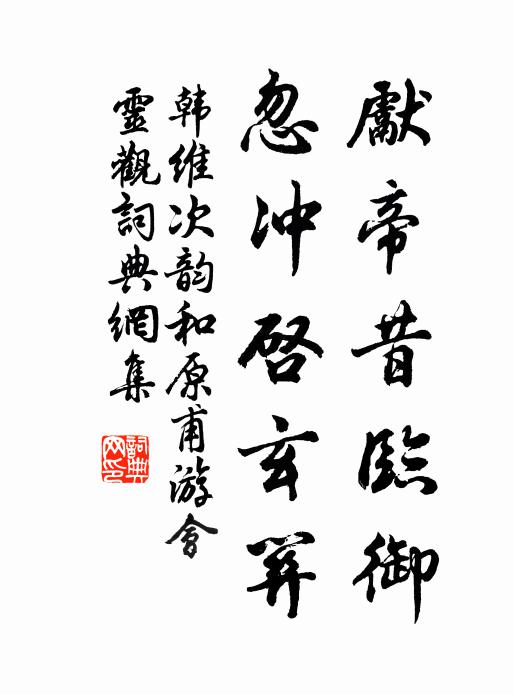 獻帝昔臨御
忽冲啓玄
韩維次韵和原甫游會
靈觀詞典網集
詞典网印